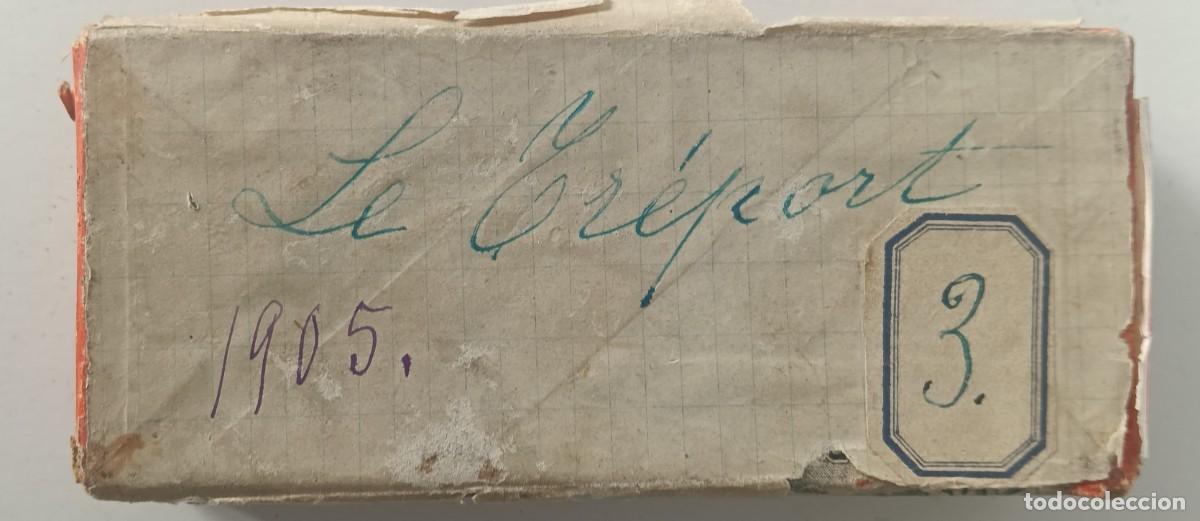 Le Tréport
1905.
3.
todocoleccion